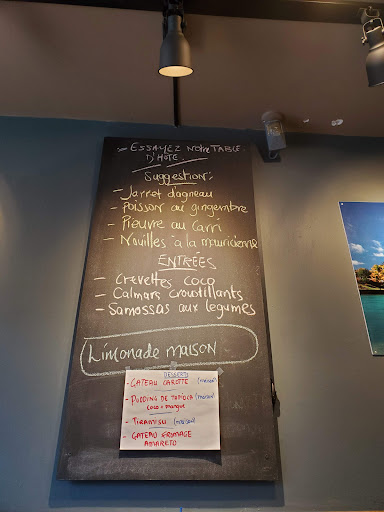 ESSAYEZ NOTRE TABLE
D'HÔTE.
Suggestion:
- Jarret d'agneau
- POISSON au gingembre
- Pieuvre au Carri
- Nouilles à la mauricienne
ENTRÉES
- Crevettes coco
- Calmars croustillants
- Samossas aux legumes
LIMONADE MAISON
DESSERTS
- GATEAU CAROTTE (maison)
- PUDDING DE TAPIOCA (maison)
COCO + mangue
- TIRAMISU (maison)
- GATEAU FROMAGE
AMARETO